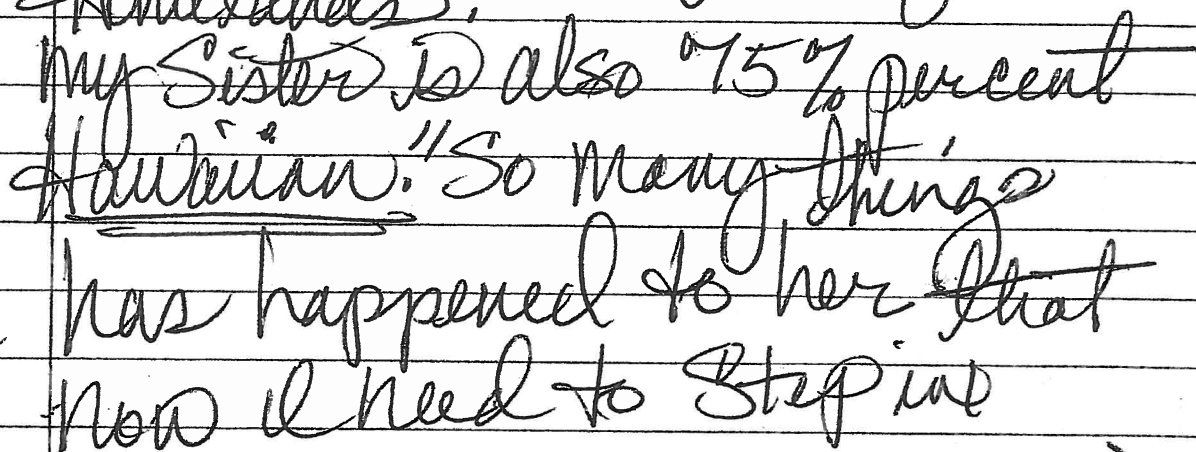 My Sister is also "75% percent
Hawaiian." So many things
has happened to her that
now I need to Step in